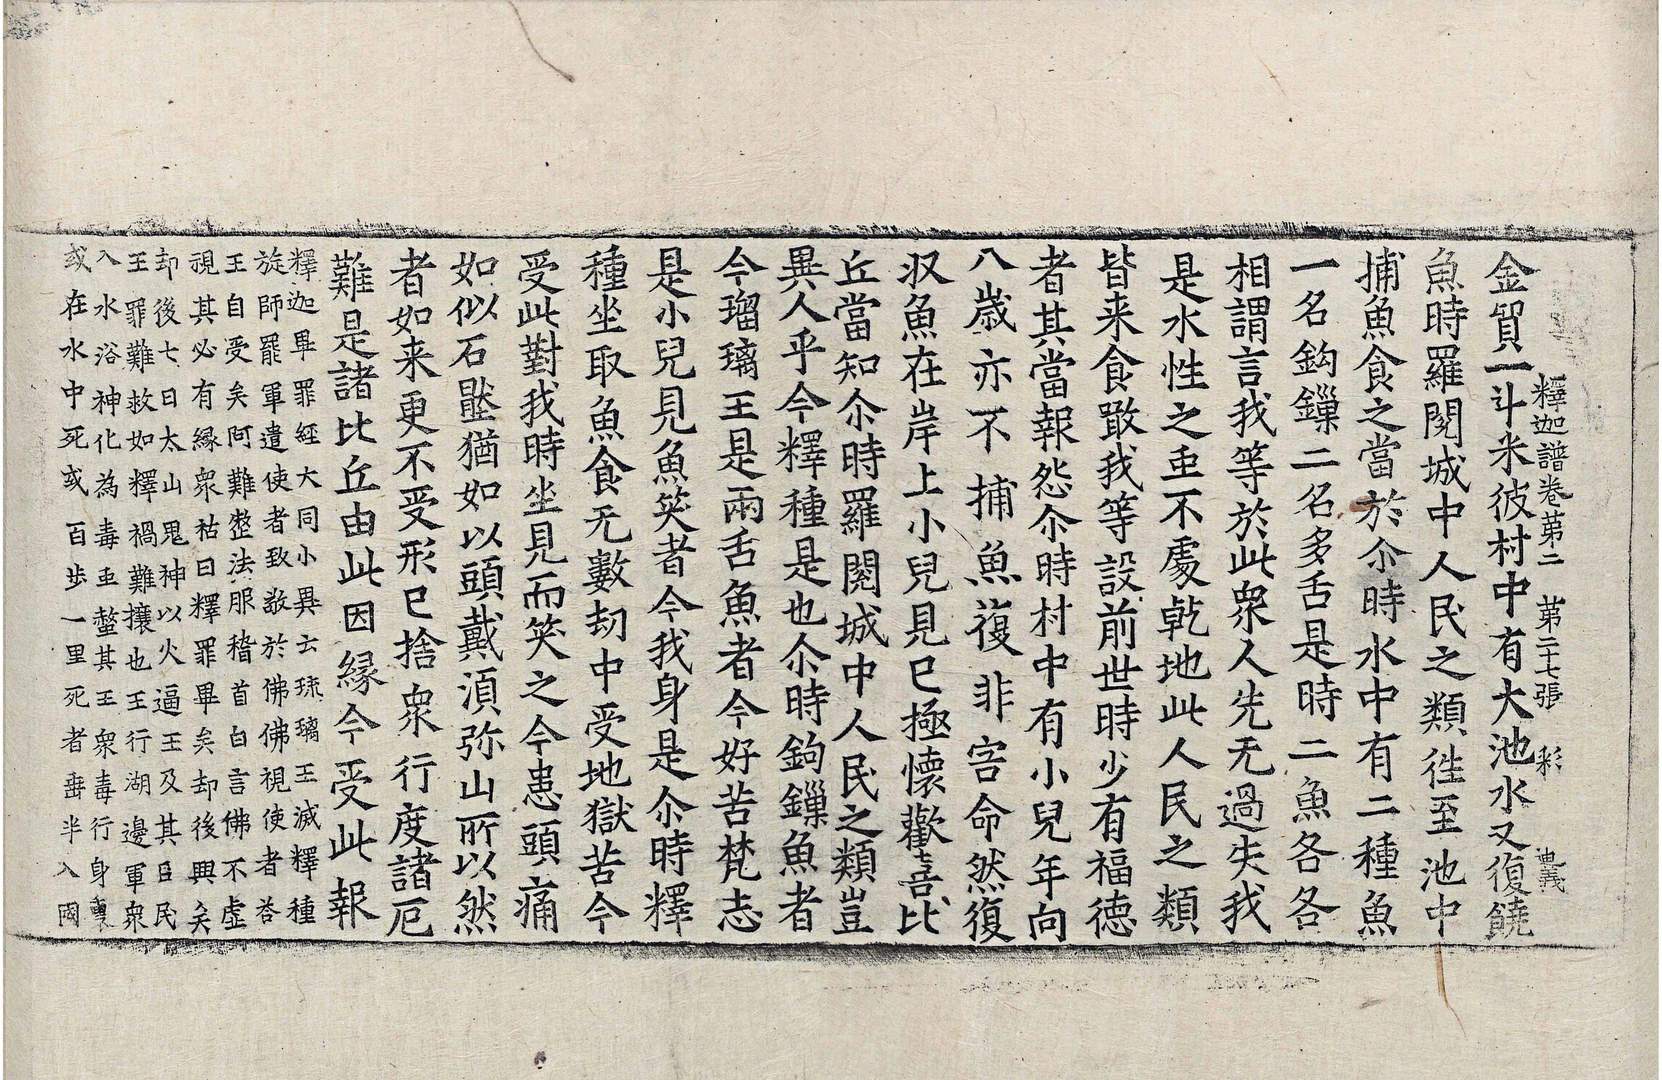 釋迦譜卷第二 第二十七張 彩
金貿一斗米彼村中有大池水又復饒
魚時羅閱城中人民之類徃至池中
捕魚食之當於尒時水中有二種魚
一名鈎鏁二名多舌是時二魚各各
相謂言我等於此衆人先无過失我
是水性之虫不處乹地此人民之類
皆来食噉我等設前世時少有福徳
者其當報怨尒時村中有小兒年向
八歳亦不捕魚復非害命然復
収魚在岸上小兒見已極懷歡喜比
丘當知尒時羅閱城中人民之類豈
異人乎今釋種是也尒時鉤鏁魚者
今瑠璃王是兩舌魚者今好苦梵志
是小兒見魚笑者今我身是尒時釋
種坐取魚食无數刼中受地獄苦今
受此對我時坐見而笑之今患頭痛
如似石壓猶如以頭戴湏弥山所以然
者如来更不受形已捨衆行度諸厄
難是諸比丘由此因緣今受此報
釋迦畢罪經大同小異云琉璃王滅釋種
旋師罷軍遣使者致敬於佛佛視使者荅
王自受矣阿難整法服稽首白言佛不虛
視其必有緣衆祜曰釋罪畢矣却後興矣
却後七日太山鬼神以火逼王及其臣民
王罪難救如釋禍難攘也王行湖邊軍衆
入水浴神化為毒虫螫其王衆毒行身
或在水中死或百歩一里死者垂半入國